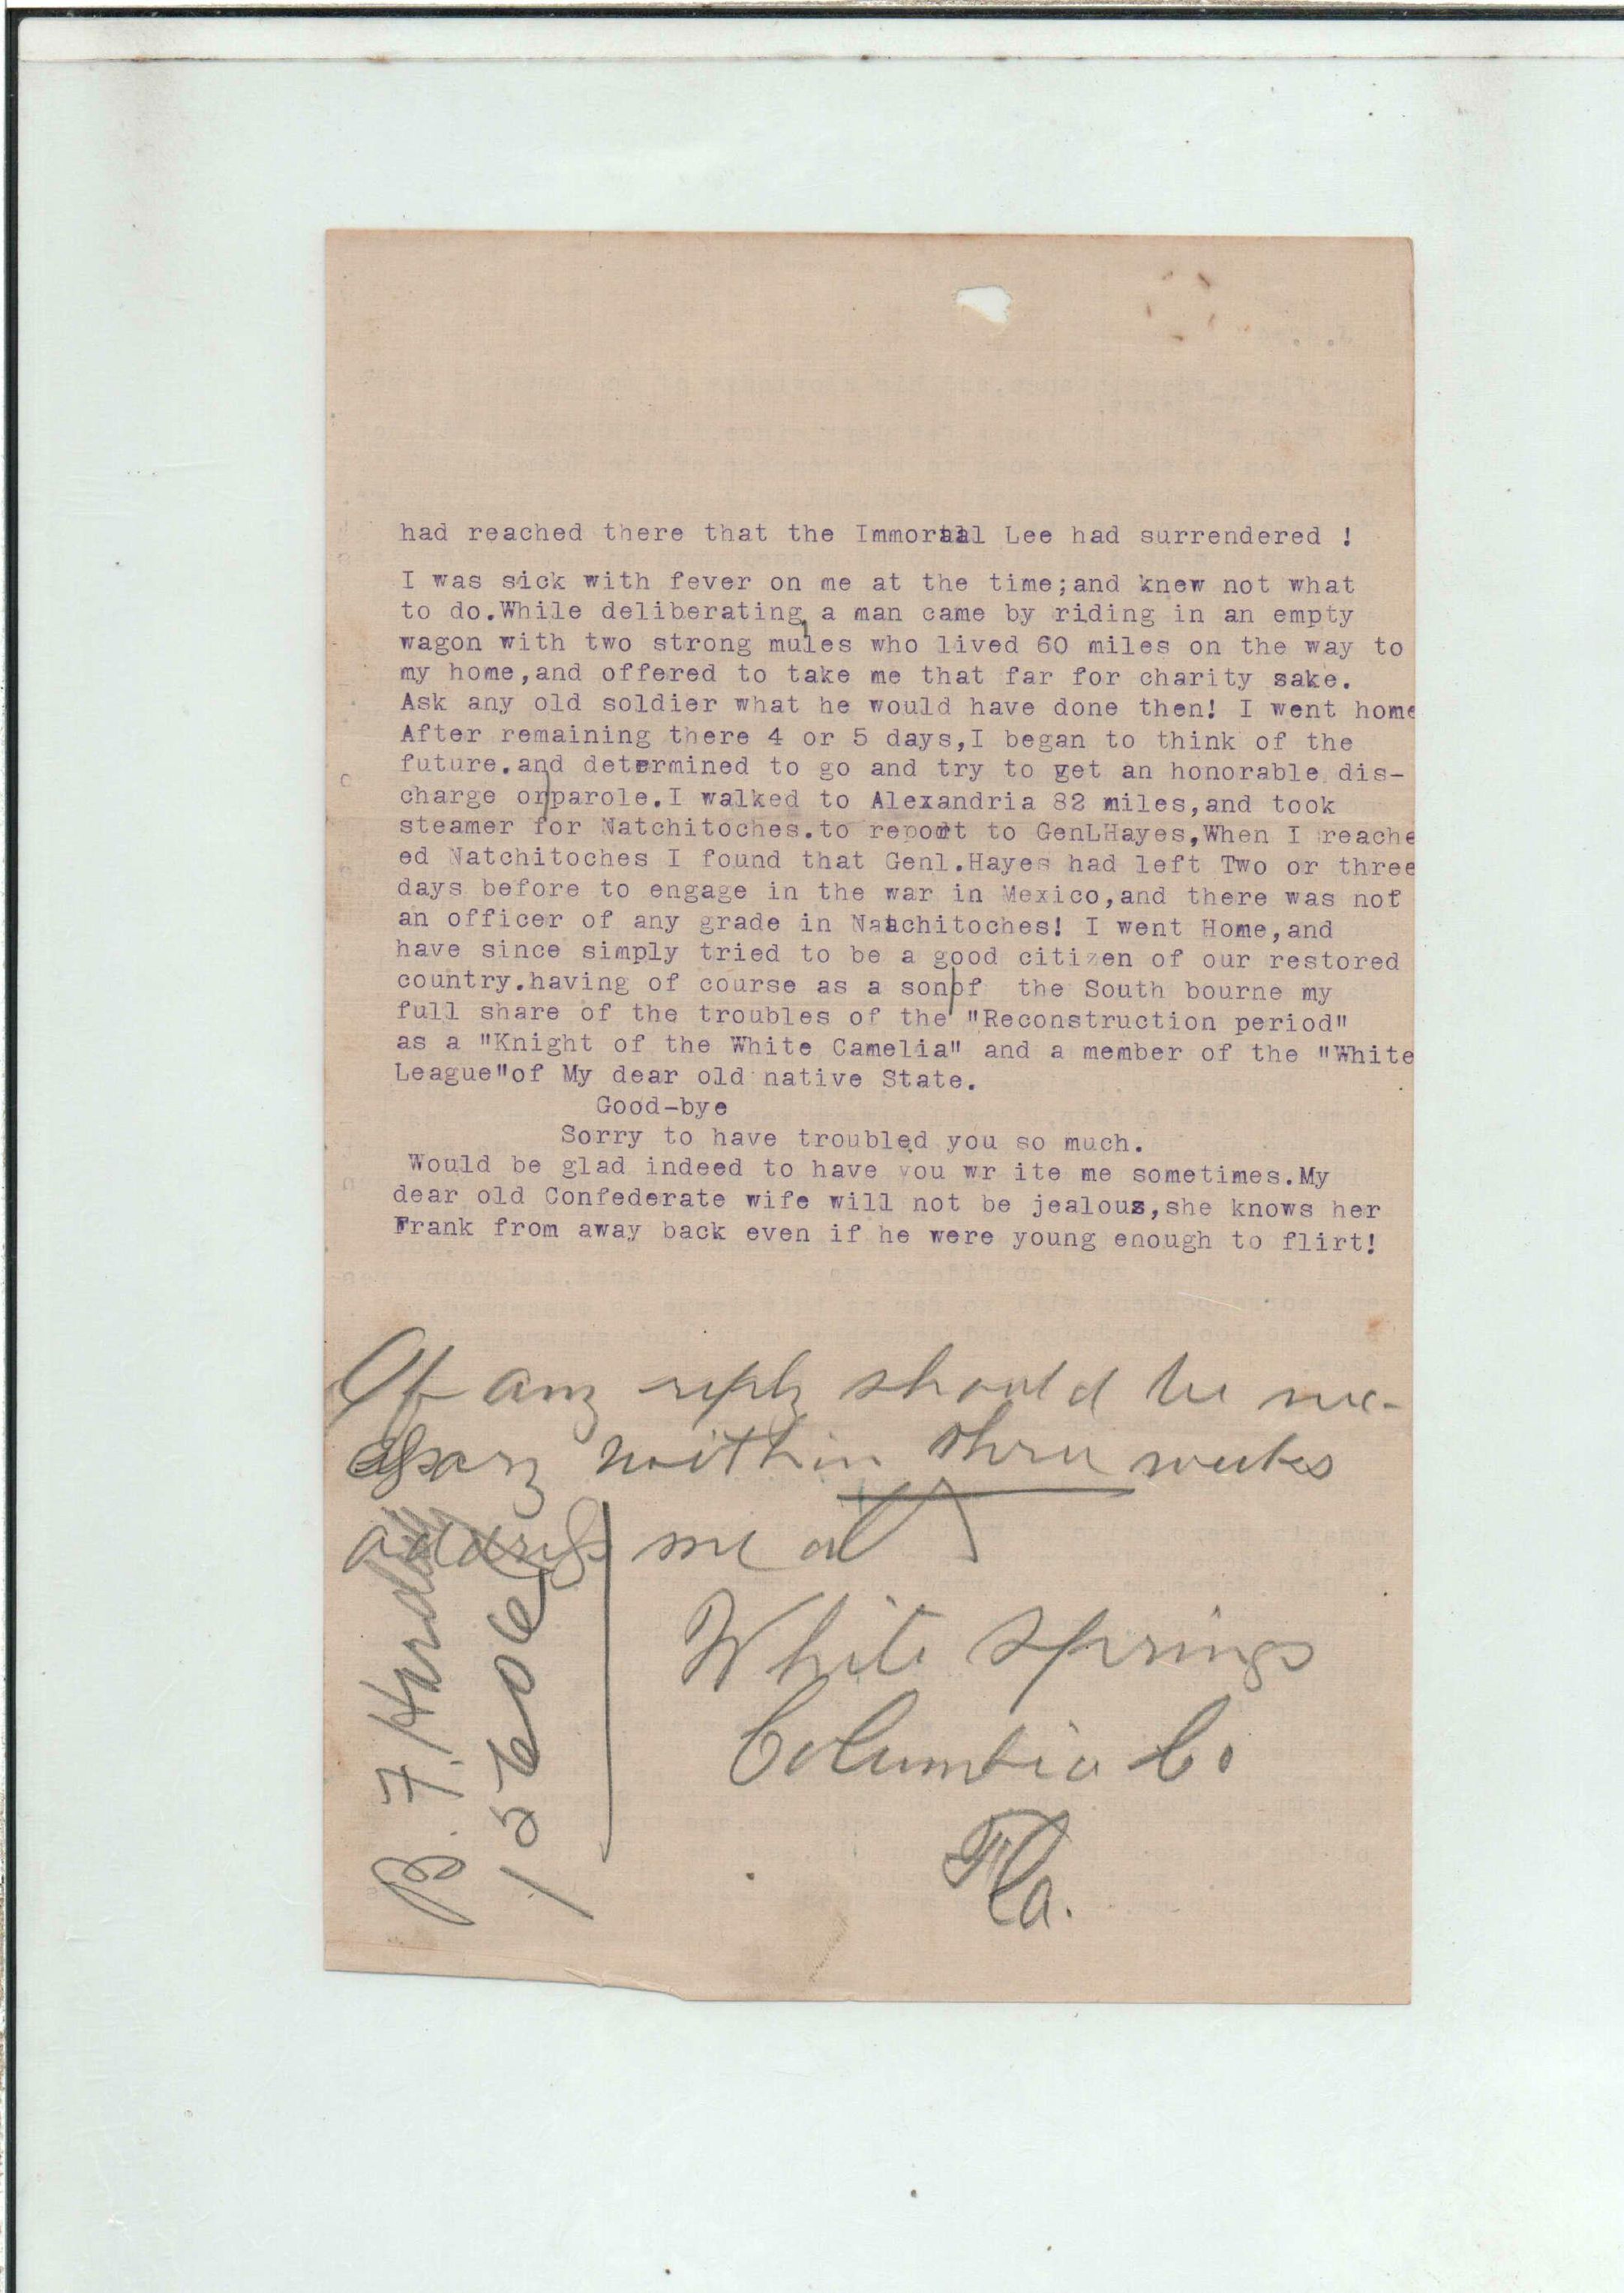 had reached there that the Immortal Lee had surrendered !
I was sick with fever on me at the time;and knew not what
to do.While deliberating, a man came by riding in an empty
wagon with two strong mules who lived 60 miles on the way to
my home,and offered to take me that far for charity sake.
Ask any old soldier what he would have done then! I went home
After remaining there 4 or 5 days,I began to think of the
future.and determined to go and try to get an honorable dis-
charge or parole.I walked to Alexandria 82 miles,and took
steamer for Natchitoches.to report to GenLHayes,When I reache
ed Natchitoches I found that Genl.Hayes had left Two or three
days before to engage in the war in Mexico,and there was not
an officer of any grade in Natchitoches! I went Home,and
have since simply tried to be a good citizen of our restored
country.having of course as a son of the South bourne my
full share of the troubles of the "Reconstruction period"
as a "Knight of the White Camelia" and a member of the "White
League"of My dear old native State.
Good-bye
Sorry to have troubled you so much.
Would be glad indeed to have you wr ite me sometimes.My
dear old Confederate wife will not be jealous,she knows her
Frank from away back even if he were young enough to flirt!
If any reply should be nec-
essary within three weeks
address me at
White Springs
Columbia Co
Fla.
B. F. Hardy